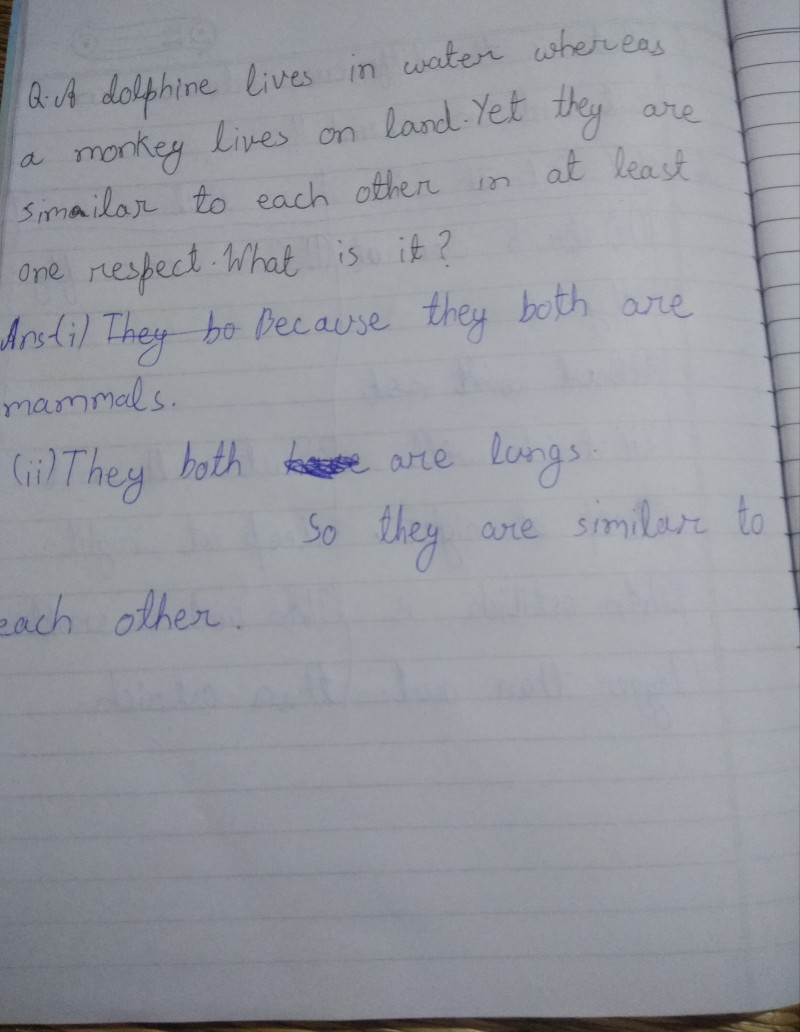 Q. A dolphine lives in water whereas
a monkey lives on land. Yet they are
simailar to each other in at least
one respect. What is it?
Ans(i) They bo Because they both are
mammals.
(ii) They both are lungs.
So they are similar to
each other.